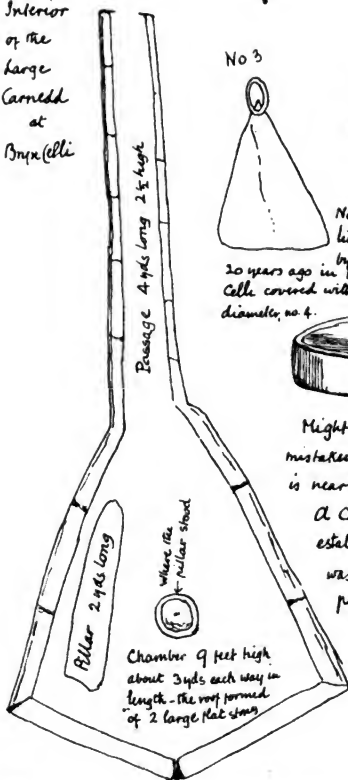 Interior
of the
Large
Carnedd
at
Bryn Celli
Passage 4 yds long 2½ high
No 3
20 years ago in
Celli covered with
diameter, no. 4.
Might
mistaken
is near
a C
estab
was
p
Pillar 2 yds long
Where the
pillar stood
Chamber 9 feet high
about 3 yds each way in
length - the roof formed
of 2 large flat stones